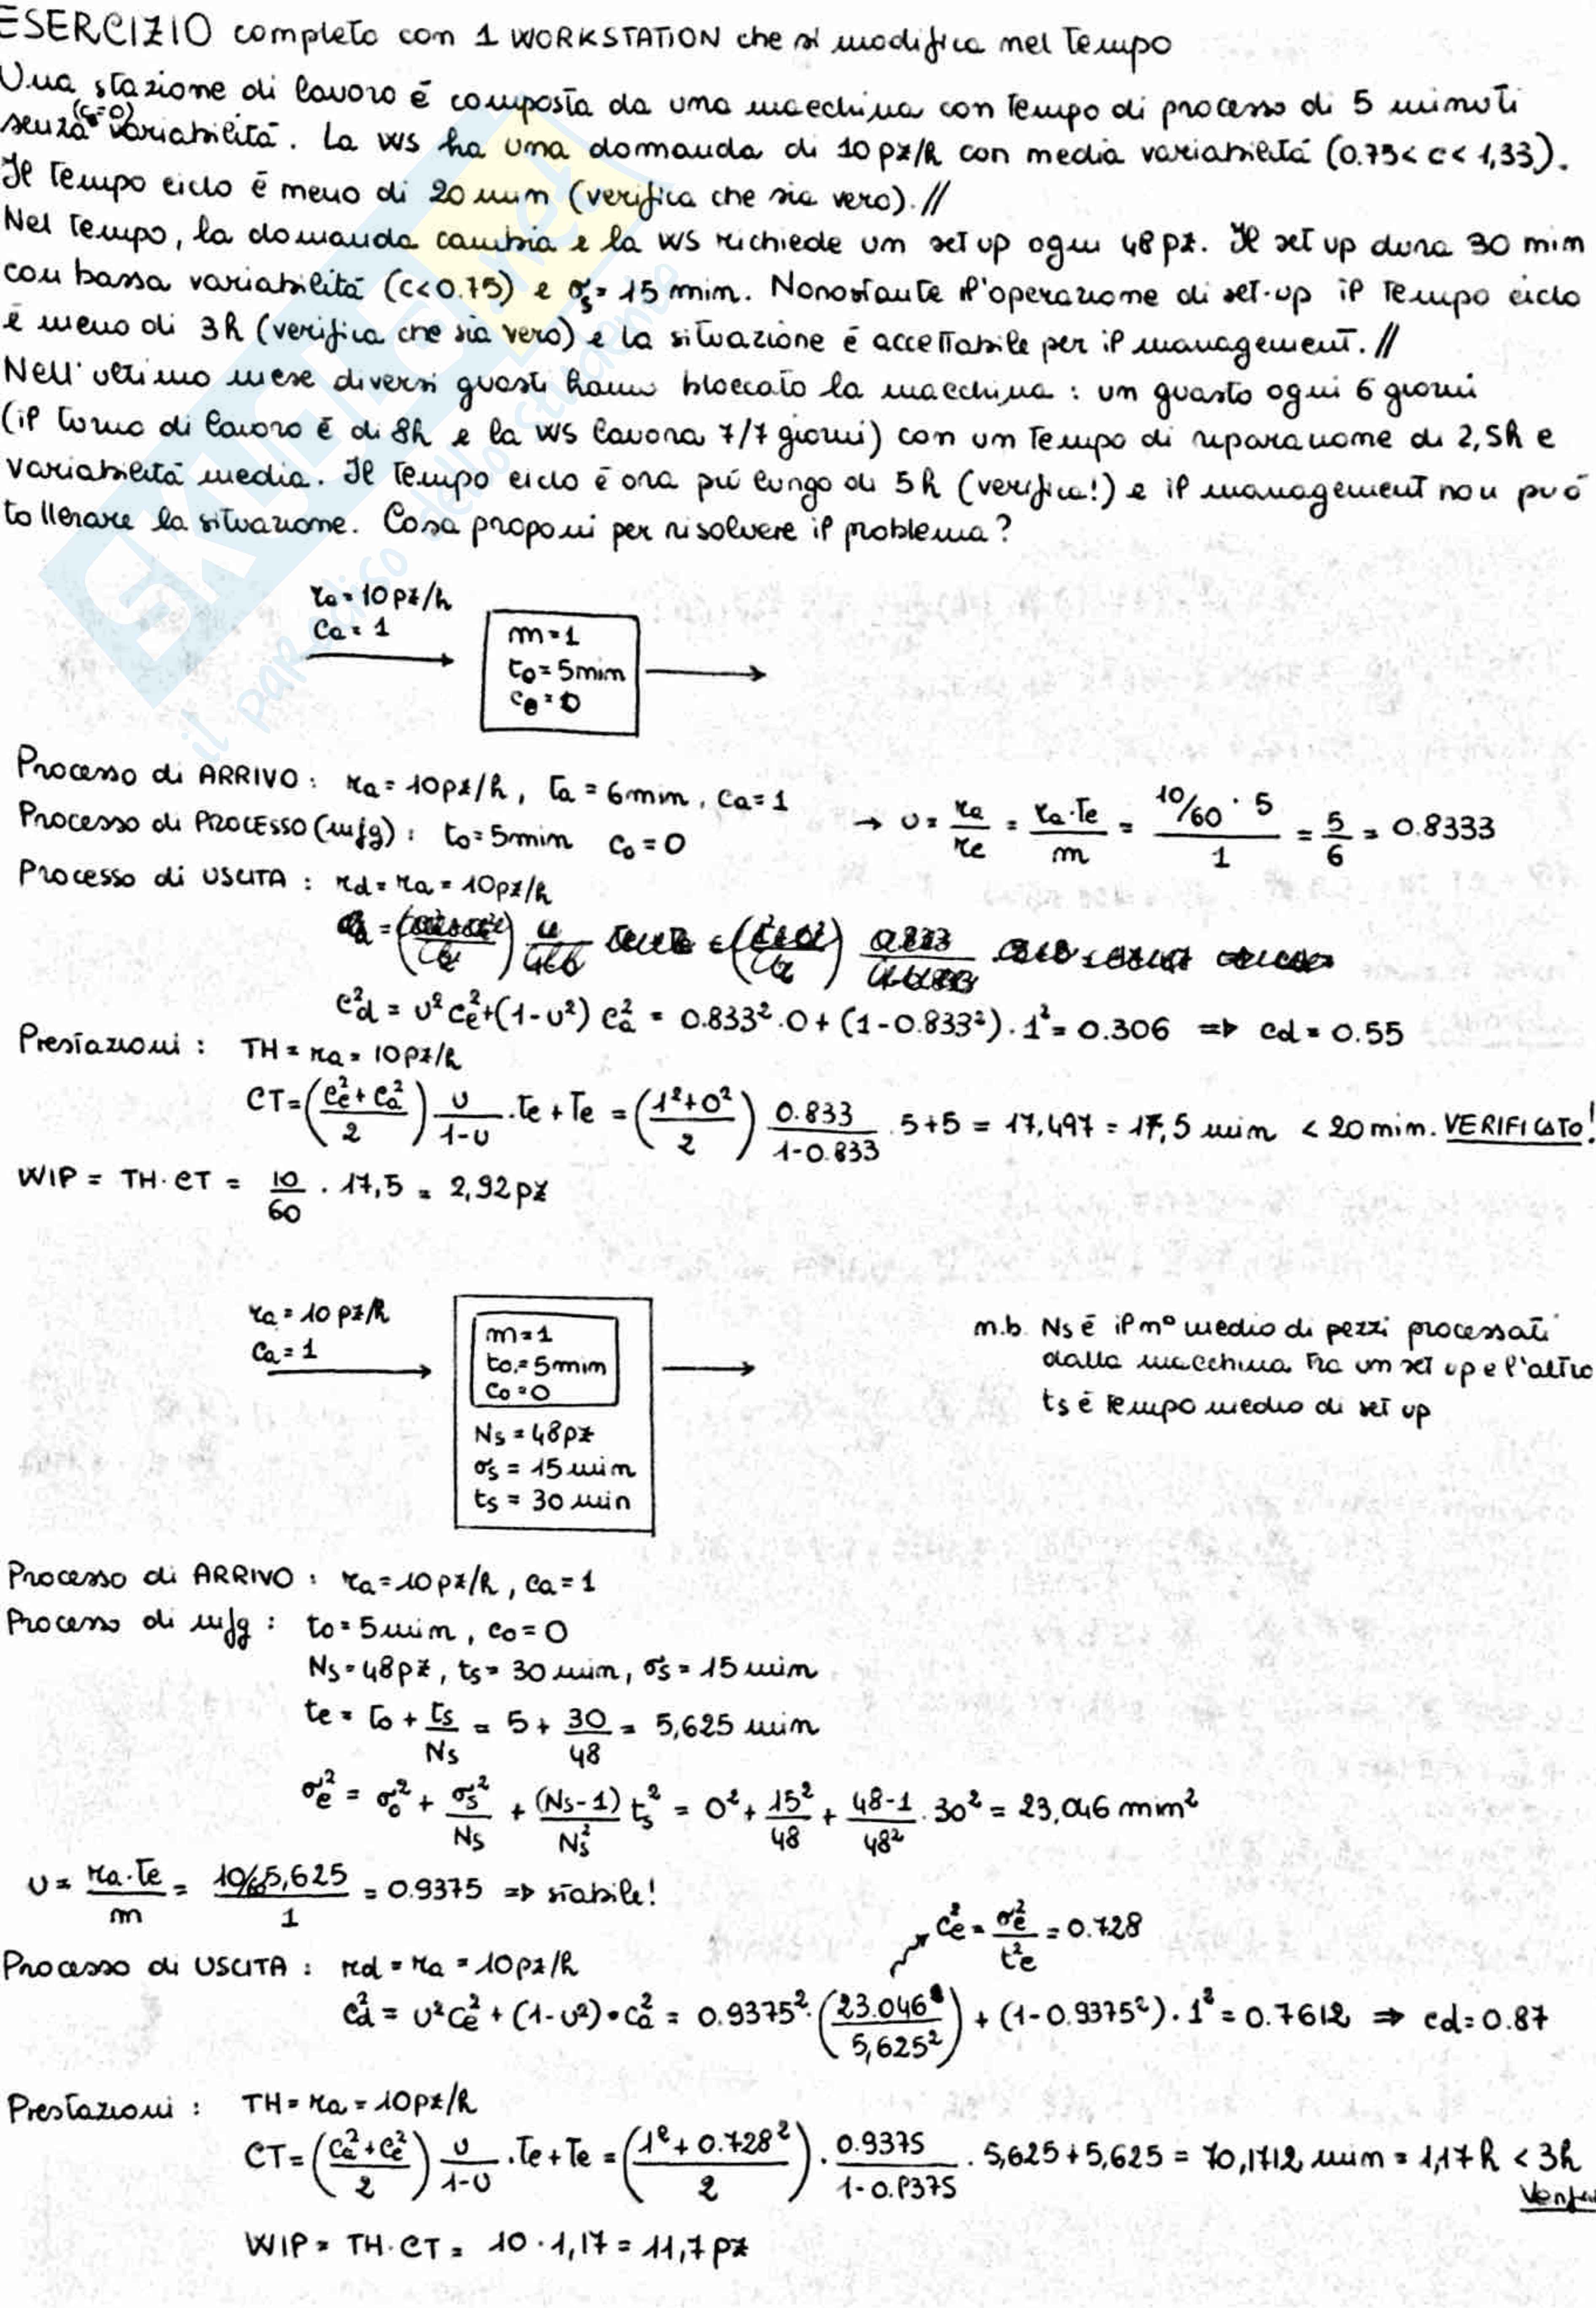 ESERCIZIO completo con 1 WORKSTATION che si modifica nel tempo
Una stazione di lavoro é composta da una macchina con tempo di processo di 5 minuti
senza variabilitá. La WS ha una domanda di 10 pz/h con media variabilitá (0.75< c < 1,33).
(c=0)
Il tempo ciclo é meno di 20 min (verifica che sia vero). //
Nel tempo, la domanda cambia e la WS richiede un set up ogni 48 pz. Il set up dura 30 min
con bassa variabilitá (c<0.75) e σs = 15 min. Nonostante l'operazione di set-up il tempo ciclo
é meno di 3h (verifica che sia vero) e la situazione é accettabile per il management. //
Nell'ultimo mese diversi guasti hanno bloccato la macchina : un guasto ogni 6 giorni
(il turno di lavoro é di 8h e la WS lavora 7/7 giorni) con un tempo di riparazione di 2,5h e
variabilitá media. Il tempo ciclo é ora piú lungo di 5h (verifica!) e il management non puó
tollerare la situazione. Cosa proponi per risolvere il problema?
ra = 10 pz/h
Ca = 1
m=1
to = 5min
Ce = 0
Processo di ARRIVO : ra = 10pz/h, ta = 6min, Ca = 1
Processo di PROCESSO (mfg) : to = 5min co = 0
→ u = ra/re = ra·te/m = (10/60 · 5)/1 = 5/6 = 0.8333
Processo di USCITA : rd = ra = 10pz/h
c²d = u² c²e + (1-u²) c²a = 0.833² · 0 + (1-0.833²) · 1² = 0.306 => cd = 0.55
Prestazioni : TH = ra = 10pz/h
CT = ((c²e + c²a)/2) u/(1-u) · te + te = ((1²+0²)/2) 0.833/(1-0.833) · 5+5 = 17,497 = 17,5 min < 20 min. VERIFICATO!
WIP = TH · CT = 10/60 · 17,5 = 2,92 pz
ra = 10 pz/h
Ca = 1
m=1
to = 5min
Co = 0
Ns = 48pz
σs = 15 min
ts = 30 min
n.b. Ns é il n° medio di pezzi processati
dalla macchina tra un set up e l'altro
ts é tempo medio di set up
Processo di ARRIVO : ra = 10pz/h, ca = 1
Processo di mfg : to = 5 min, co = 0
Ns = 48pz, ts = 30 min, σs = 15 min
te = to + ts/Ns = 5 + 30/48 = 5,625 min
σ²e = σ²o + σ²s/Ns + (Ns-1)/N²s t²s = 0² + 15²/48 + (48-1)/48² · 30² = 23,046 min²
u = ra·te/m = (10/60 5,625)/1 = 0.9375 => stabile!
c²e = σ²e/t²e = 0.728
Processo di USCITA : rd = ra = 10pz/h
c²d = u² c²e + (1-u²) · c²a = 0.9375² · (23.046/5,625²) + (1-0.9375²) · 1² = 0.7612 => cd = 0.87
Prestazioni : TH = ra = 10pz/h
CT = ((c²a + c²e)/2) u/(1-u) · te + te = ((1² + 0.728²)/2) · 0.9375/(1-0.9375) · 5,625 + 5,625 = 70,1712 min = 1,17 h < 3h
WIP = TH · CT = 10 · 1,17 = 11,7 pz